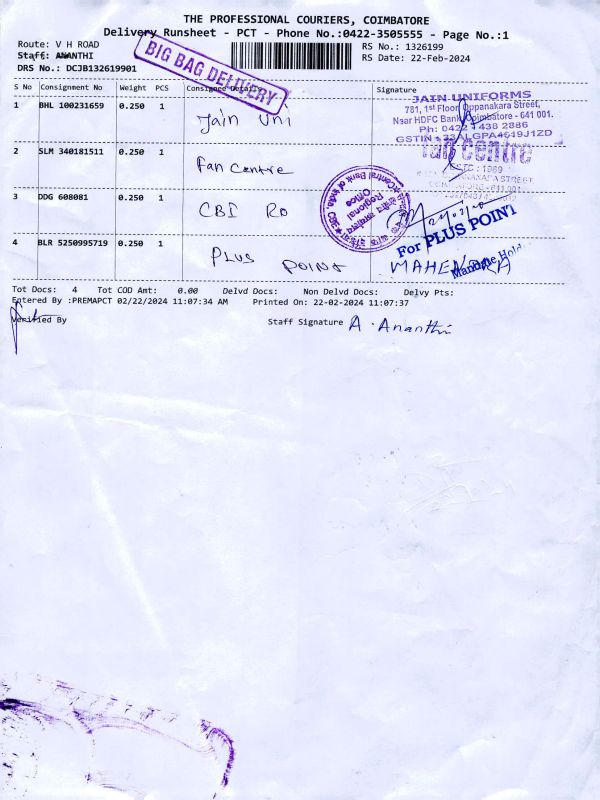 THE PROFESSIONAL COURIERS, COIMBATORE
Delivery Runsheet - PCT - Phone No.:0422-3505555 - Page No.:1
Route: V H ROAD
RS No.: 1326199
Staff: ANANTHI
RS Date: 22-Feb-2024
DRS No.: DCJB132619901
BIG BAG DELIVERY
S No Consignment No Weight PCS Consignee Details Signature
1 BHL 100231659 0.250 1 Jain Uni
JAIN UNIFORMS
781, 1st Floor, Oppanakara Street,
Near HDFC Bank, Coimbatore - 641 001.
Ph: 0422 438 2886
GSTIN : 33ALGPA4619J1ZD
2 SLM 340181511 0.250 1 Fan Centre
fan centre
3 DDG 608081 0.250 1 CBI RO
Central Bank of India
Regional
Office
For PLUS POINT
4 BLR 5250995719 0.250 1 PLUS POINT MAHENDRA
Tot Docs: 4 Tot COD Amt: 0.00 Delvd Docs: Non Delvd Docs: Delvy Pts:
Entered By :PREMAPCT 02/22/2024 11:07:34 AM Printed On: 22-02-2024 11:07:37
Verified By
Staff Signature A. Ananthi